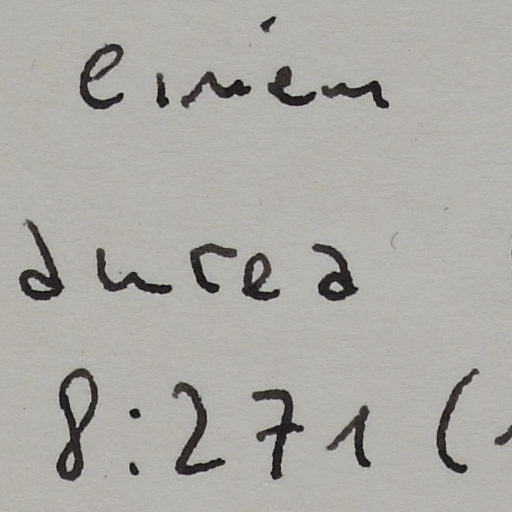 einem
aurea
8:271 (1